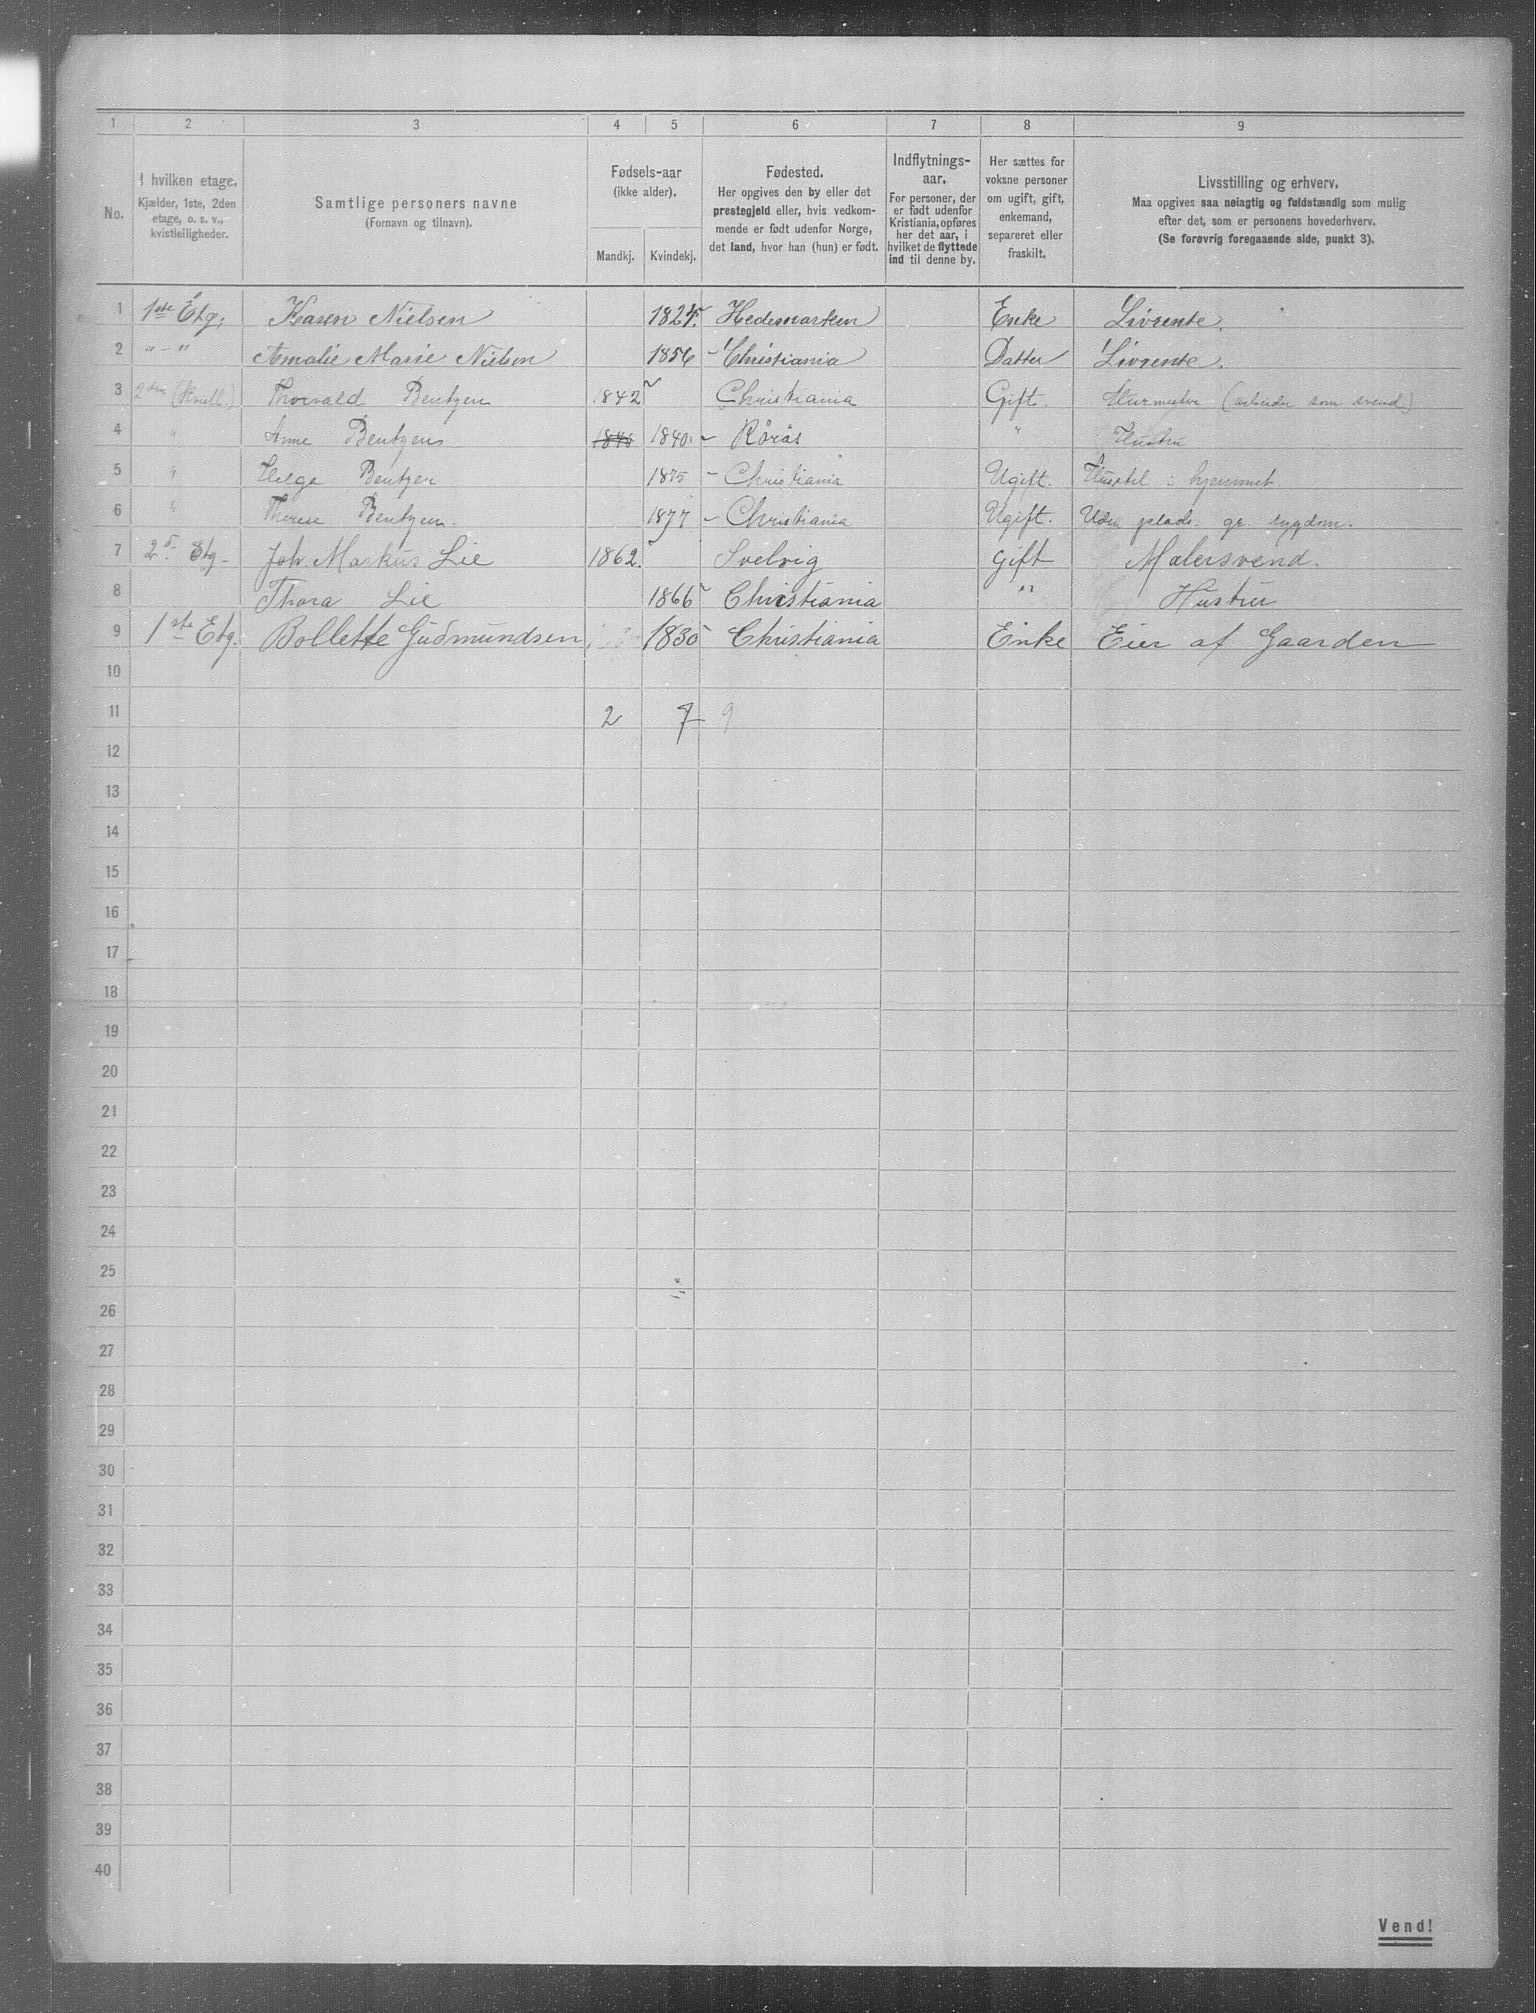 1 2 3 4 5 6 7 8 9
No.
I hvilken etage.
Kjælder, 1ste, 2den
etage, o. s. v.,
kvistleiligheder.
Samtlige personers navne
(Fornavn og tilnavn).
Fødsels-aar
(ikke alder).
Mandkj. Kvindekj.
Fødested.
Her opgives den by eller det
prestegjeld eller, hvis vedkom-
mende er født udenfor Norge,
det land, hvor han (hun) er født.
Indflytnings-
aar.
For personer, der
er født udenfor
Kristiania, opføres
her det aar, i
hvilket de flyttede
ind til denne by.
Her sættes for
voksne personer
om ugift, gift,
enkemand,
separeret eller
fraskilt.
Livsstilling og erhverv.
Maa opgives saa nøiagtig og fuldstændig som mulig
efter det, som er personens hovederhverv.
(Se forøvrig foregaaende side, punkt 3).
1 1ste Etg. Karen Nielsen 1824 Hedemarken Enke Livrente.
2 " - " Amalie Marie Nielsen 1856 - Christiania Datter Livrente.
3 2den Thorvald Bentzen 1842 Christiania Gift. (arbeider som svend)
4 " Anne Bentzen 1840 1840. - Rørås " Hustru
5 " Helga Bentzen 1875 - Christiania Ugift. i hjemmet.
6 " Therese Bentzen. 1877 - Christiania Ugift. Uden plads. gr. sygdom.
7 2 Etg - Joh. Markus Lie 1862. Svelvig gift Malersvend.
8 Thora Lie 1866 Christiania " Hustru
9 1ste Etg. Bollette Gudmundsen 1830 Christiania Enke Eier af Gaarden
10
11 2 7 9
12
13
14
15
16
17
18
19
20
21
22
23
24
25
26
27
28
29
30
31
32
33
34
35
36
37
38
39
40
Vend!